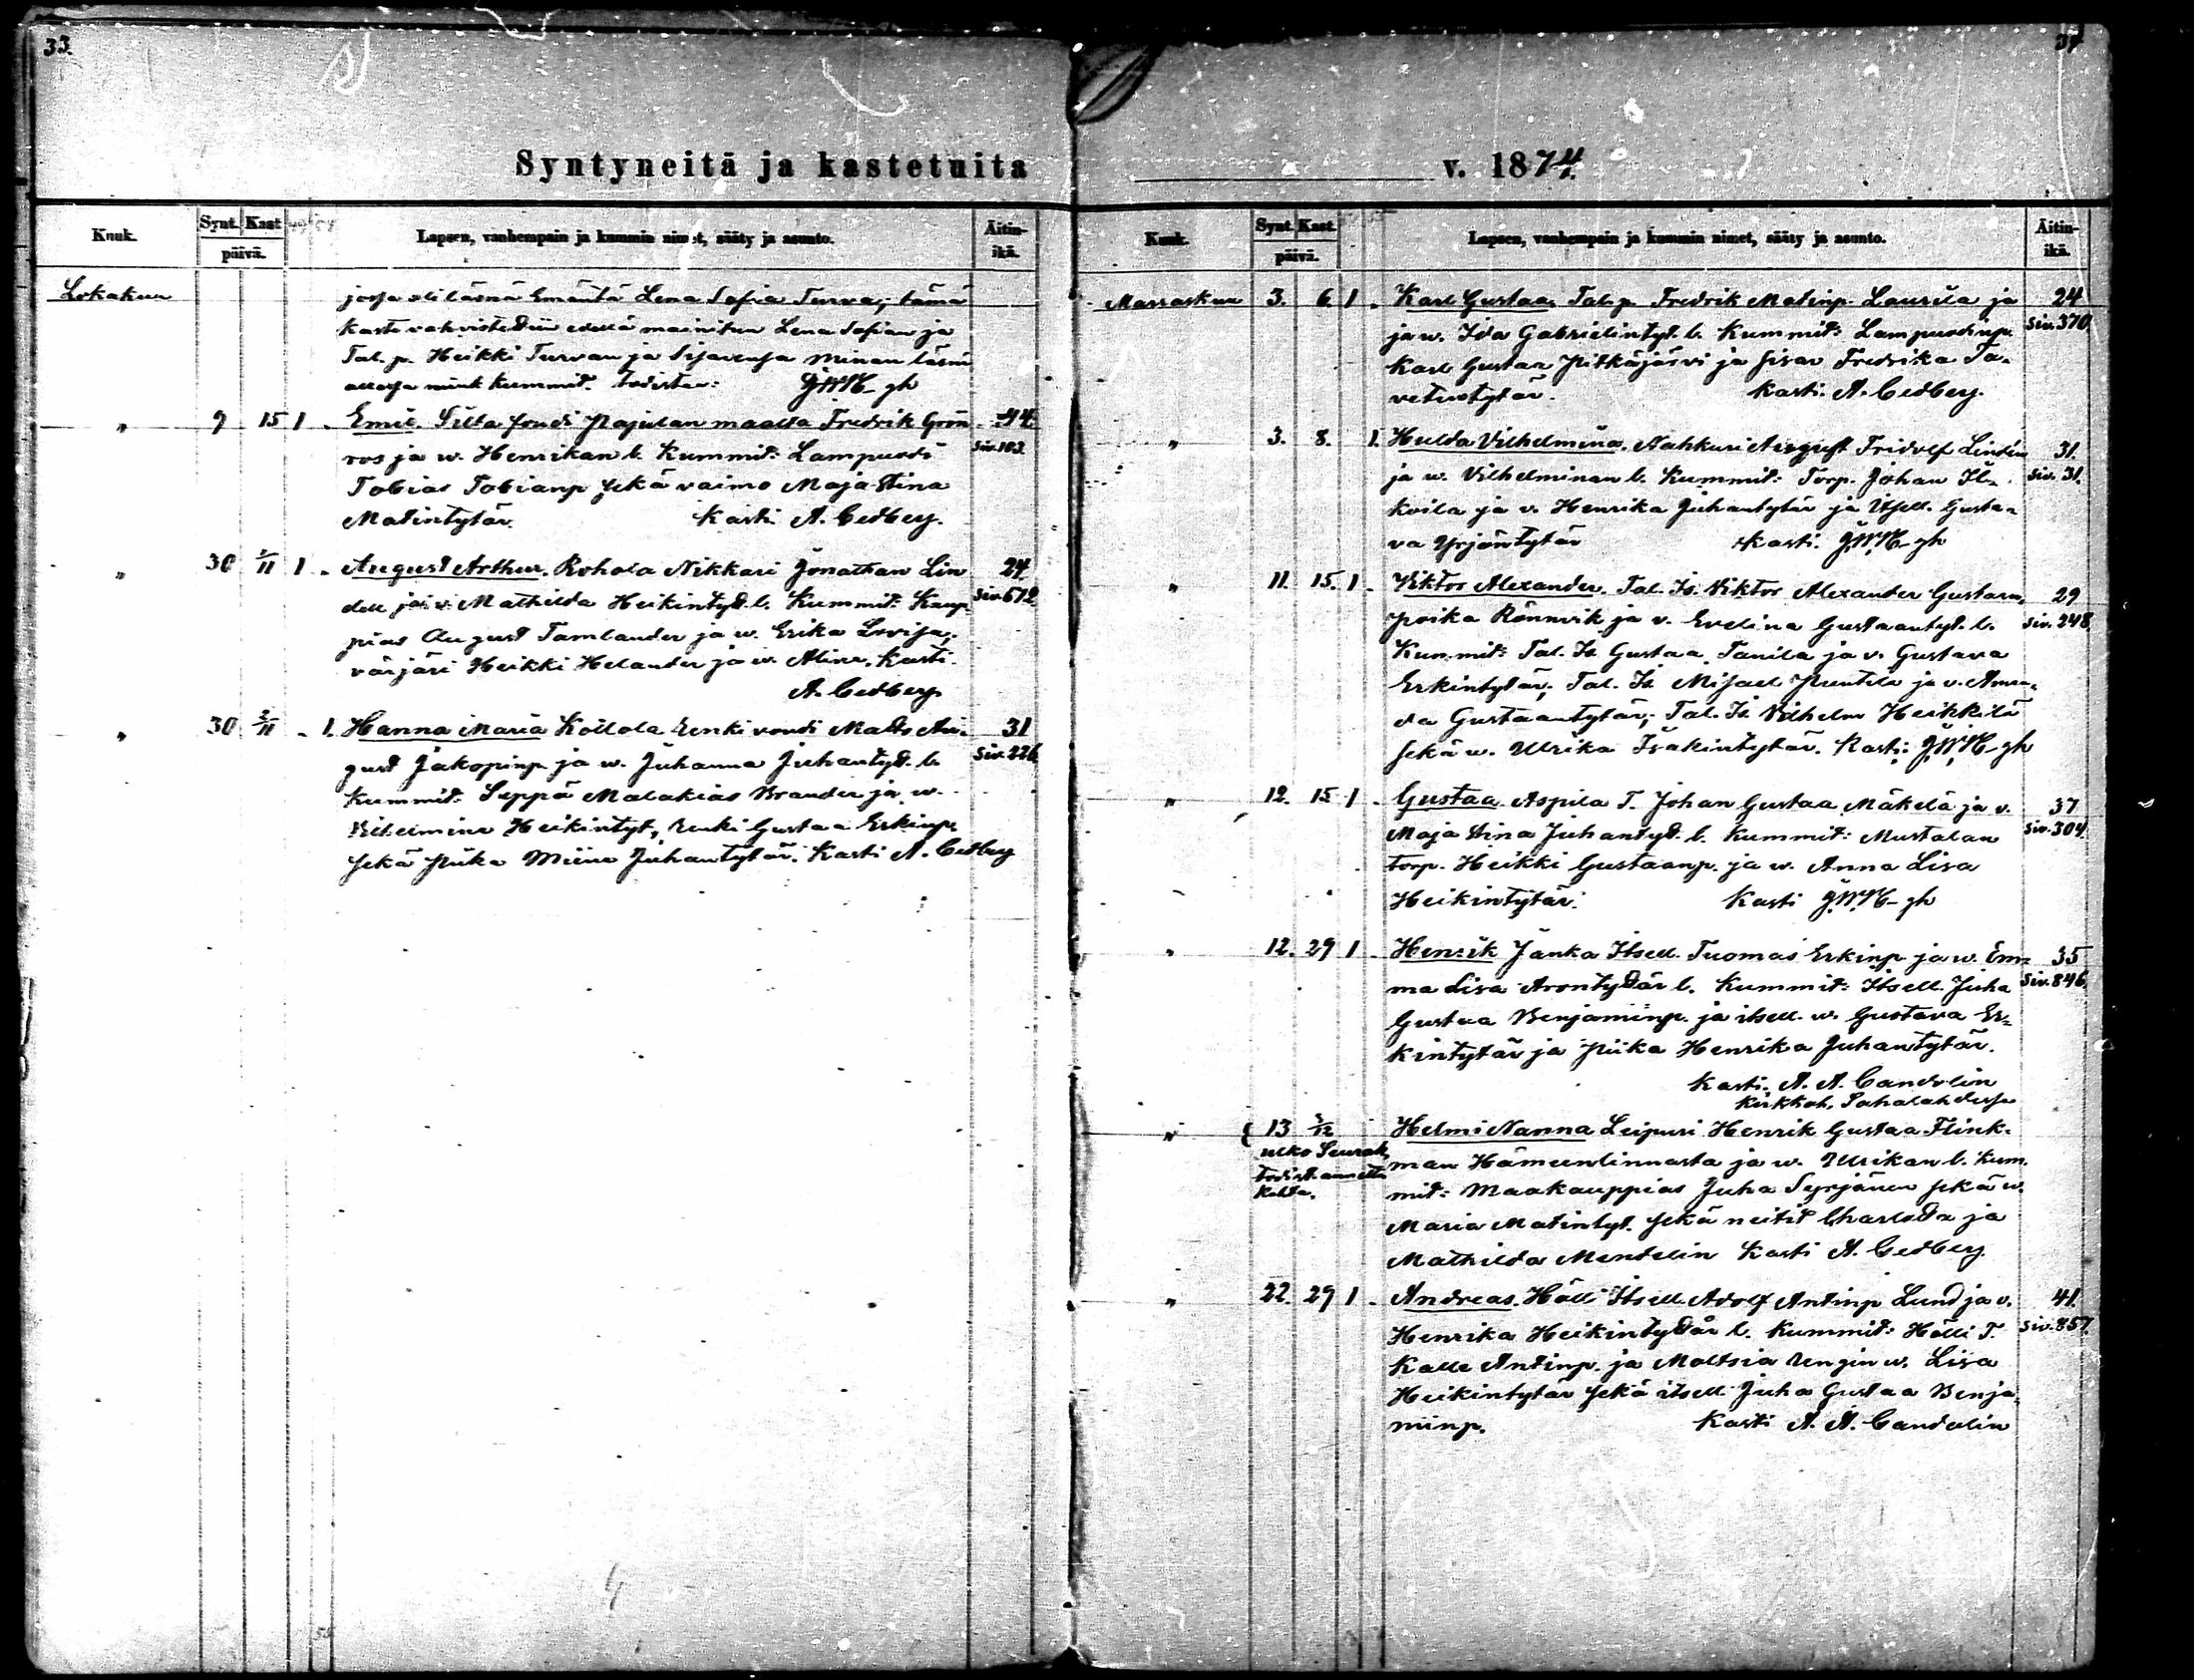 33.
Syntyneitä ja kastetuita
Kuuk.
Synt. Kast
päivä.
Lapsen, vanhempain ja kummin nimet, sääty ja asunto.
Äitin-
ikä.
Lokakuu
jossa oli läsnä Emäntä Lena Sofia Turva; tämä
kaste vahvistettiin edellä mainitun Lena Sofian ja
Tal. p. Heikki Turvan ja minun läsnä
kummit. todistaa: J.W.H-gh
" 9 15 1 . Emil. Silta Pajulan maalta Fredrik Grön 44.
ros ja w. Henrikan l. Kummit: Lampuodi siv. 103.
Tobias Tobianp sekä vaimo Maja Stina
Matintytär. Kasti A. Cedberg.
" 30 1/11 1 . August Arthur. Rohola Nikkari Jonathan Lin 24.
dell ja v. Mathilda Heikintyt. l. Kummit: Kaup siv. 672
pias August Tamlander ja w. Erika Lovisa;
värjäri Heikki Helander ja w. Alina. Kasti.
A. Cedberg.
" 30 2/11 . 1. Hanna Maria Kollola Renki vouti Matts Au- 31
gust Jakopinp. ja w. Juhanna Juhantyt. l. siv. 226
Kummit: Seppä Malakias Brander ja w.
Vilhelmina Heikintyt, Renki Gustaa Erkinp.
sekä piika Miina Juhantytär. Kasti A. Cedberg
34
v. 1874.
Kuuk.
Synt. Kast.
päivä.
Lapsen, vanhempain ja kummin nimet, sääty ja asunto.
Äitin-
ikä.
Marraskuu 3. 6 1 . Karl Gustaa. Tal. p. Fredrik Matinp. Laurila ja 24
ja w. Ida Gabrielintyt. l. Kummit: Lampuodinp. siv. 370.
Karl Gustaa Pitkäjärvi ja sisar Fredrika Ta-
vetintytär. Kasti. A. Cedberg.
" 3. 8. 1. Hulda Vilhelmina. Nahkuri August Fridolf Lindén 31.
ja w. Vilhelminan l. Kummit: Torp. Johan Il- siv. 31.
koila ja v. Henrika Juhantytär ja Itsell. Gusta-
va Yrjöntytär Kasti. J.W.H-gh
" 11. 15. 1 . Viktor Alexander. Tal. Is. Viktor Alexander Gustaan 29
poika Rönnvik ja v. Evelina Gustaantyt. l. siv. 248
Kummit: Tal. Is Gustaa Tanila ja v. Gustava
Erkintytär; Tal. Is Misael Puntila ja v. Aman-
da Gustaantytär; Tal. Is Vilhelm Heikkilä
sekä w. Ulrika Isakintytär. Kasti: J.W.H-gh
" 12. 15 1 . Gustaa. Aspila T. Johan Gustaa Mäkelä ja v. 37
Maja Stina Juhantyt. l. Kummit: Mustalan siv. 304.
torp. Heikki Gustaanp. ja w. Anna Lisa
Heikintytär. Kasti J.W.H-gh
" 12. 29 1 . Henrik Jänka Itsell. Tuomas Erkinp ja w. Em- 35
ma Lisa Arontytär l. Kummit: Itsell. Juha siv. 846.
Gustaa Benjaminp. ja itsell. w. Gustava Er-
kintytär ja Piika Henrika Juhantytär.
Kasti. A. A. Candolin
Kirkkoh. Sahalahdessa
" 13 5/12 Helmi Nanna Leipuri Henrik Gustaa Flink-
ulko Seurak. man Hämeenlinnasta ja w. Ulrikan l. Kum.
todist. annettu mit: Maakauppias Juha Syrjänen sekä w.
Maria Matintyt. sekä neitit Charlotta ja
Mathilda Mendelin Kasti A. Cedberg.
" 22. 29 1 . Andreas. Hölli Itsell. Adolf Antinp Lund ja v. 41.
Henrika Heikintytär l. Kummit: Hölli T. siv. 857.
Kalle Antinp. ja Moltsia Rengin w. Lisa
Heikintytär sekä itsell. Juha Gustaa Benja-
minp. Kasti A. A. Candolin